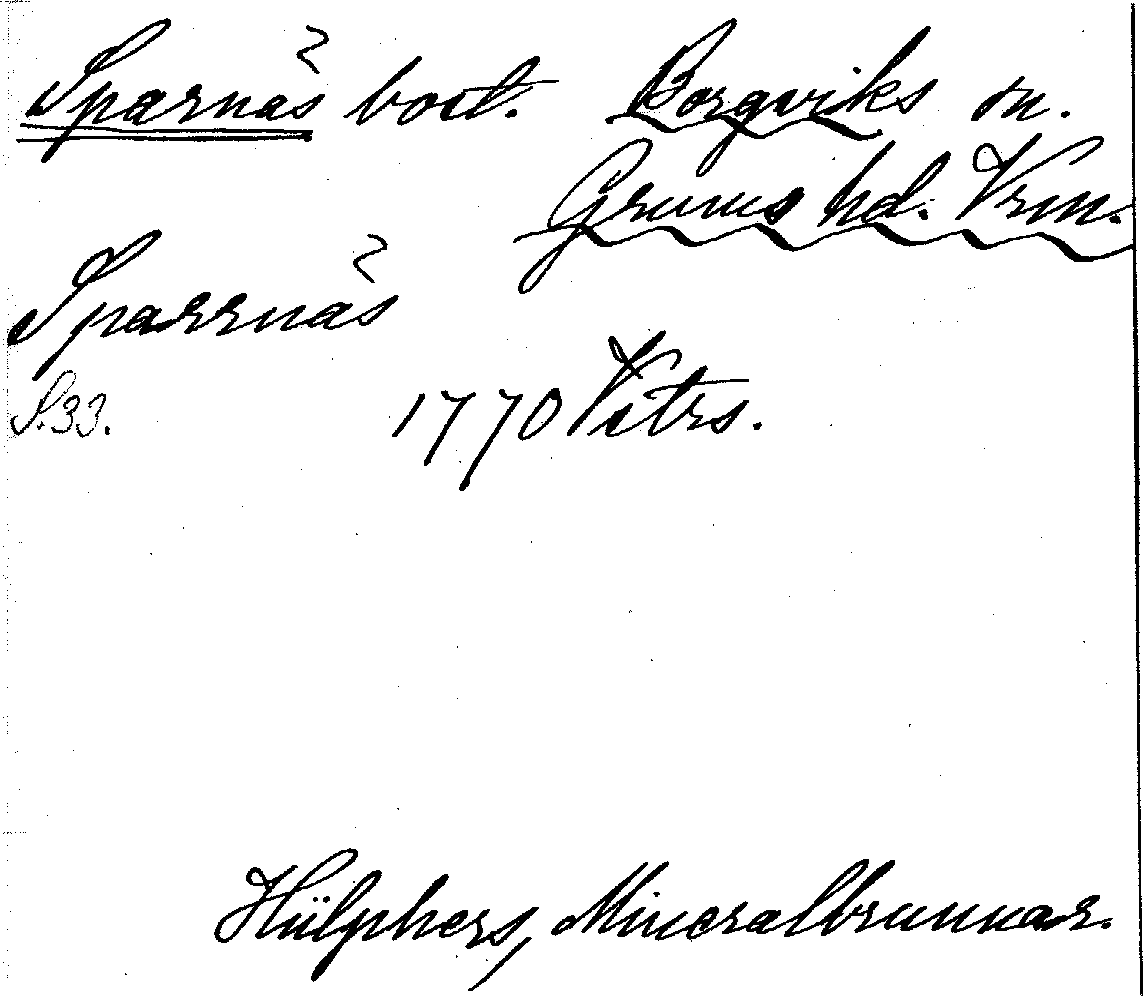 Sparnäs bost. Borgviks sn.
Grums hd. Vrm.
Sparrnäs
S. 33. 1770 Vstrs.
Hülphers, Mineralbrunnar.